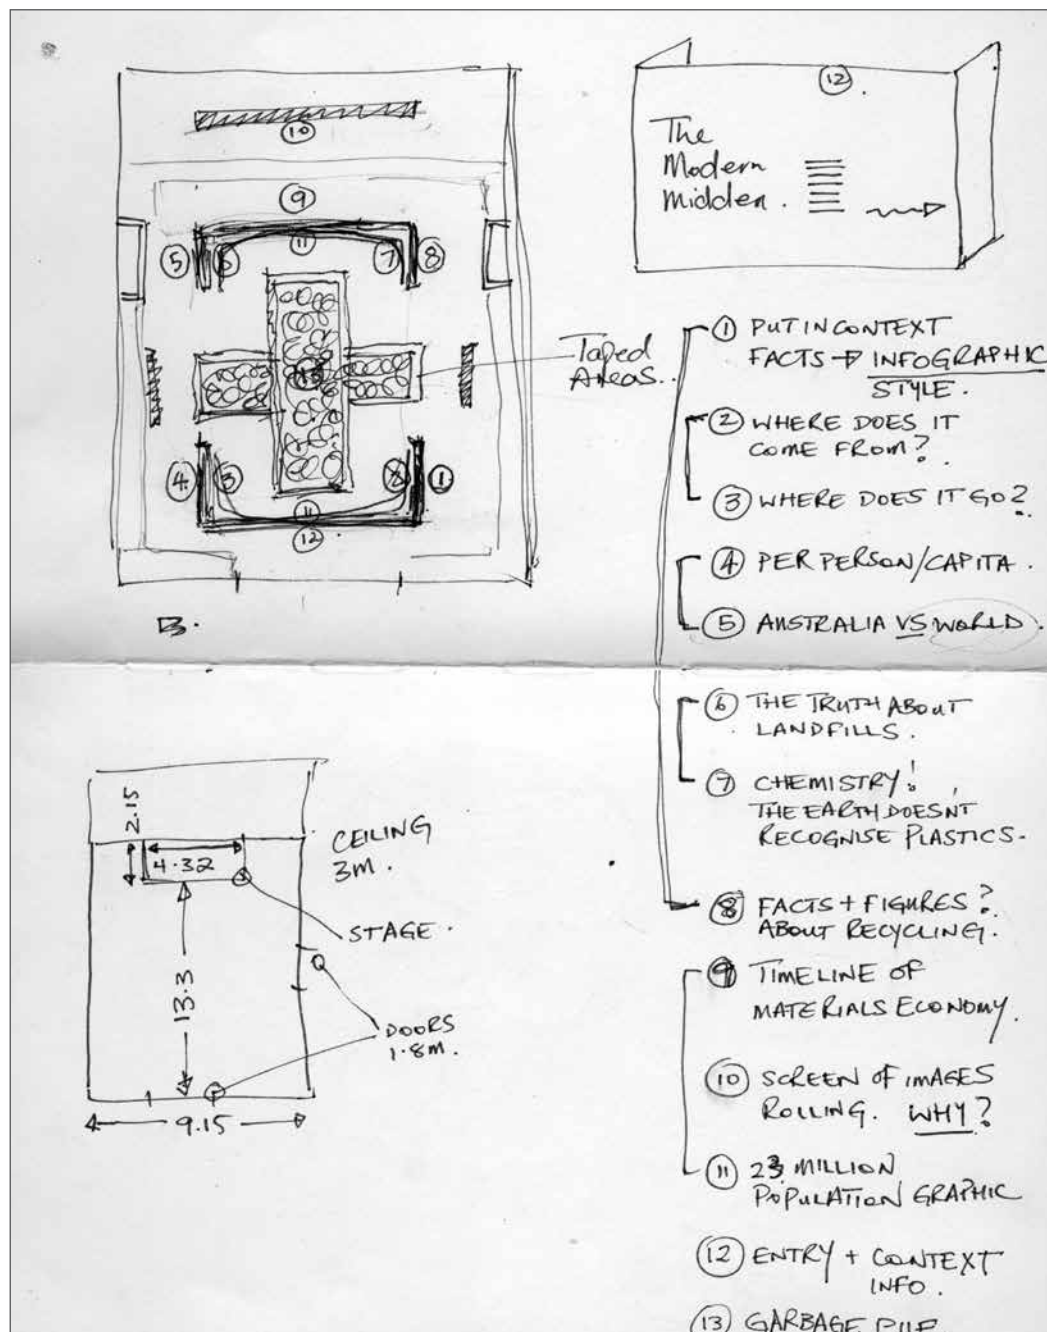 10
9
5
6
11
7
8
Taped
Areas.
13
4
3
2
1
11
12
12
The
Modern
Midden.
1 PUT IN CONTEXT
FACTS → INFOGRAPHIC
STYLE.
2 WHERE DOES IT
COME FROM?
3 WHERE DOES IT GO?
4 PER PERSON/CAPITA.
5 AUSTRALIA VS WORLD.
6 THE TRUTH ABOUT
LANDFILLS.
7 CHEMISTRY!
THE EARTH DOESN'T
RECOGNISE PLASTICS.
8 FACTS + FIGURES?
ABOUT RECYCLING.
9 TIMELINE OF
MATERIALS ECONOMY.
10 SCREEN OF IMAGES
ROLLING. WHY?
11 23 MILLION
POPULATION GRAPHIC
12 ENTRY + CONTEXT
INFO.
13 GARBAGE PILE
2.15
4.32
CEILING
3M.
STAGE.
13.3
DOORS
1.8M.
9.15